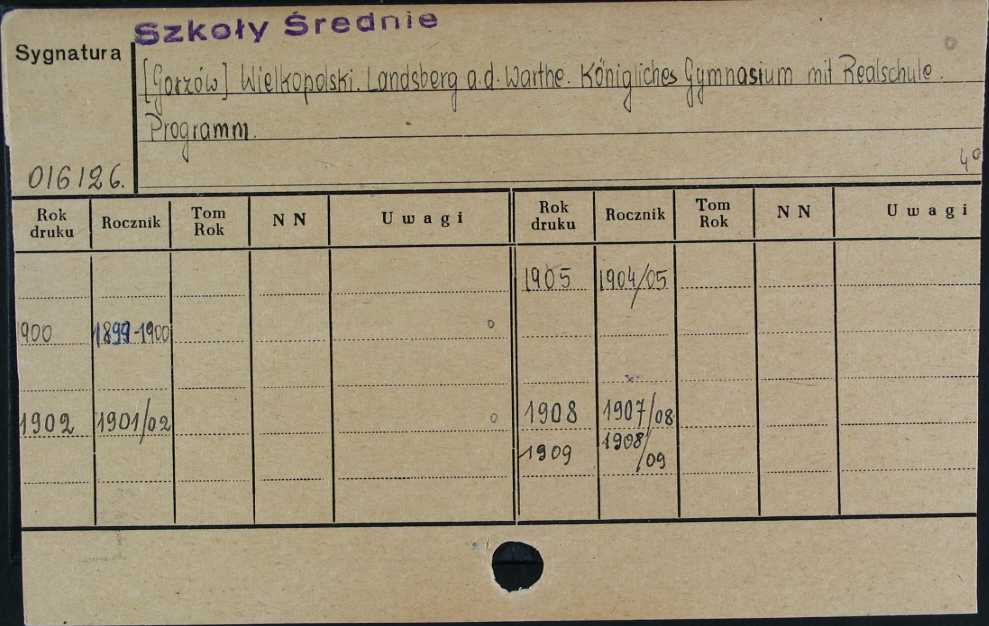 Szkoły Średnie
Sygnatura
[Gorzów] Wielkopolski. Landsberg a.d. Warthe. Königliches Gymnasium mit Realschule.
Programm.
4°
016126.
Rok druku Rocznik Tom Rok N N Uwagi Rok druku Rocznik Tom Rok N N Uwagi
1905 1904/05
1900 1899-1900
1902 1901/02 1908 1907/08
1909 1908/09